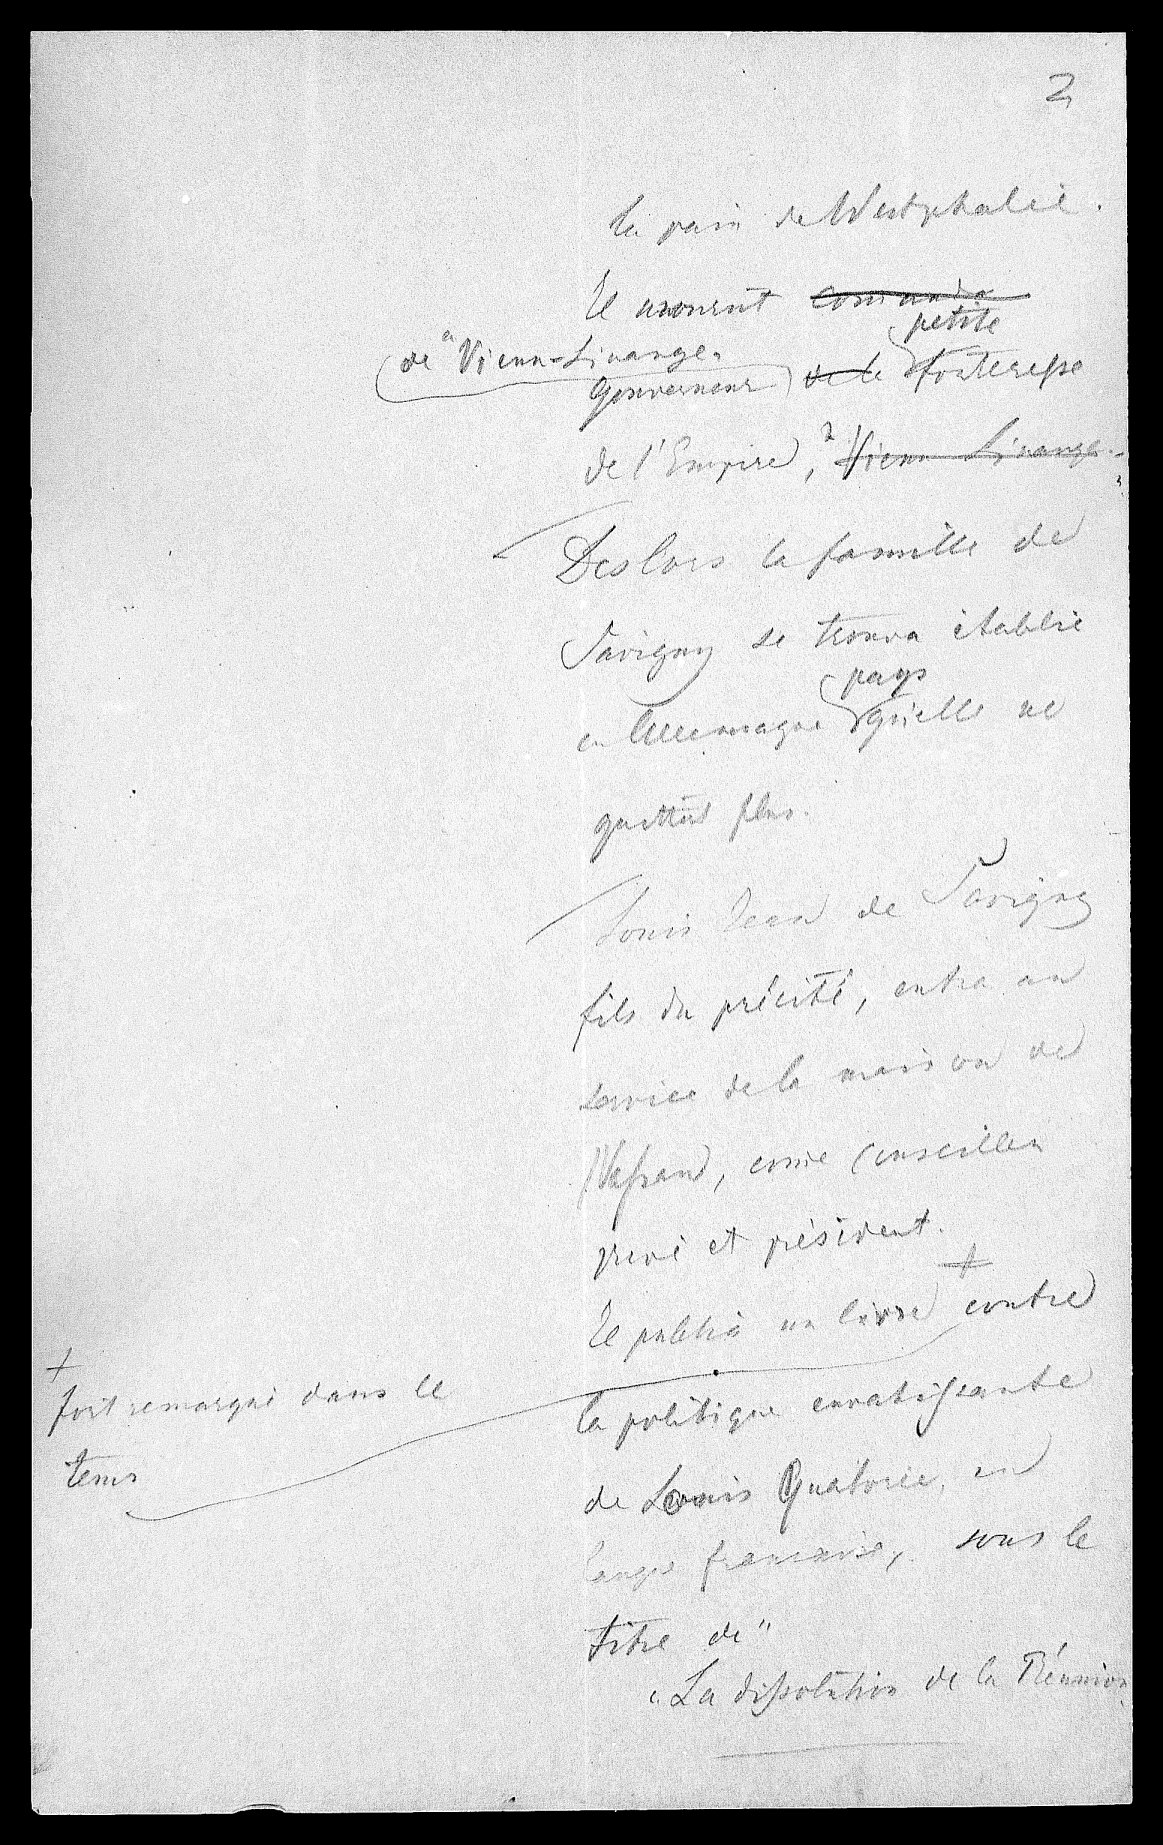 2
la paix de Westphalie.
Il mourut comanda
petite
de "Vieux-Linange"
Gouverneur de la forteresse
de l'Empire, Vieux Linange.
Des lors la famille de
Savigny se trouva établie
pays
en Allemagne qu'elle ne
quittat plus.
Louis Jean de Savigny
fils du précité, entra au
service de la maison de
Nassau, come conseiller
privé et président.
Il publia un livre + contre
+
fort remarqué dans le
tems
la politique envahissante
de Louis Quatorze, en
langue francaise, sous le
titre de "
"La dissolution de la Réunion"